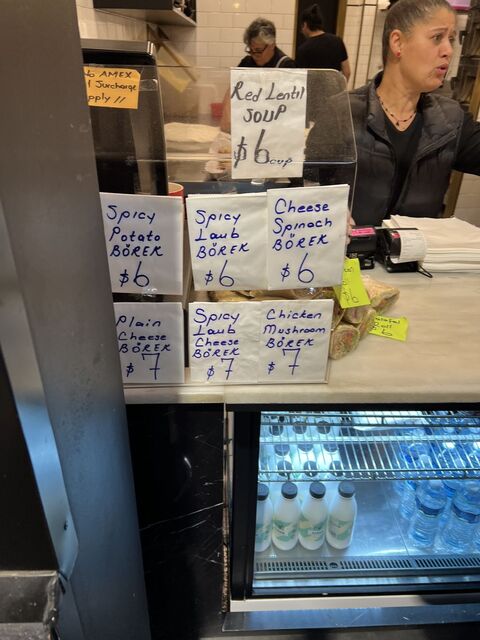 AMEX
Surcharge
pply !!
Red Lentil
SOUP
$6 cup
Spicy
Potato
BÖREK
$6
Spicy
Lamb
BÖREK
$6
Cheese
Spinach
BÖREK
$6
$6
Plain
Cheese
BÖREK
$7
Spicy
Lamb
Cheese
BÖREK
$7
Chicken
Mushroom
BÖREK
$7